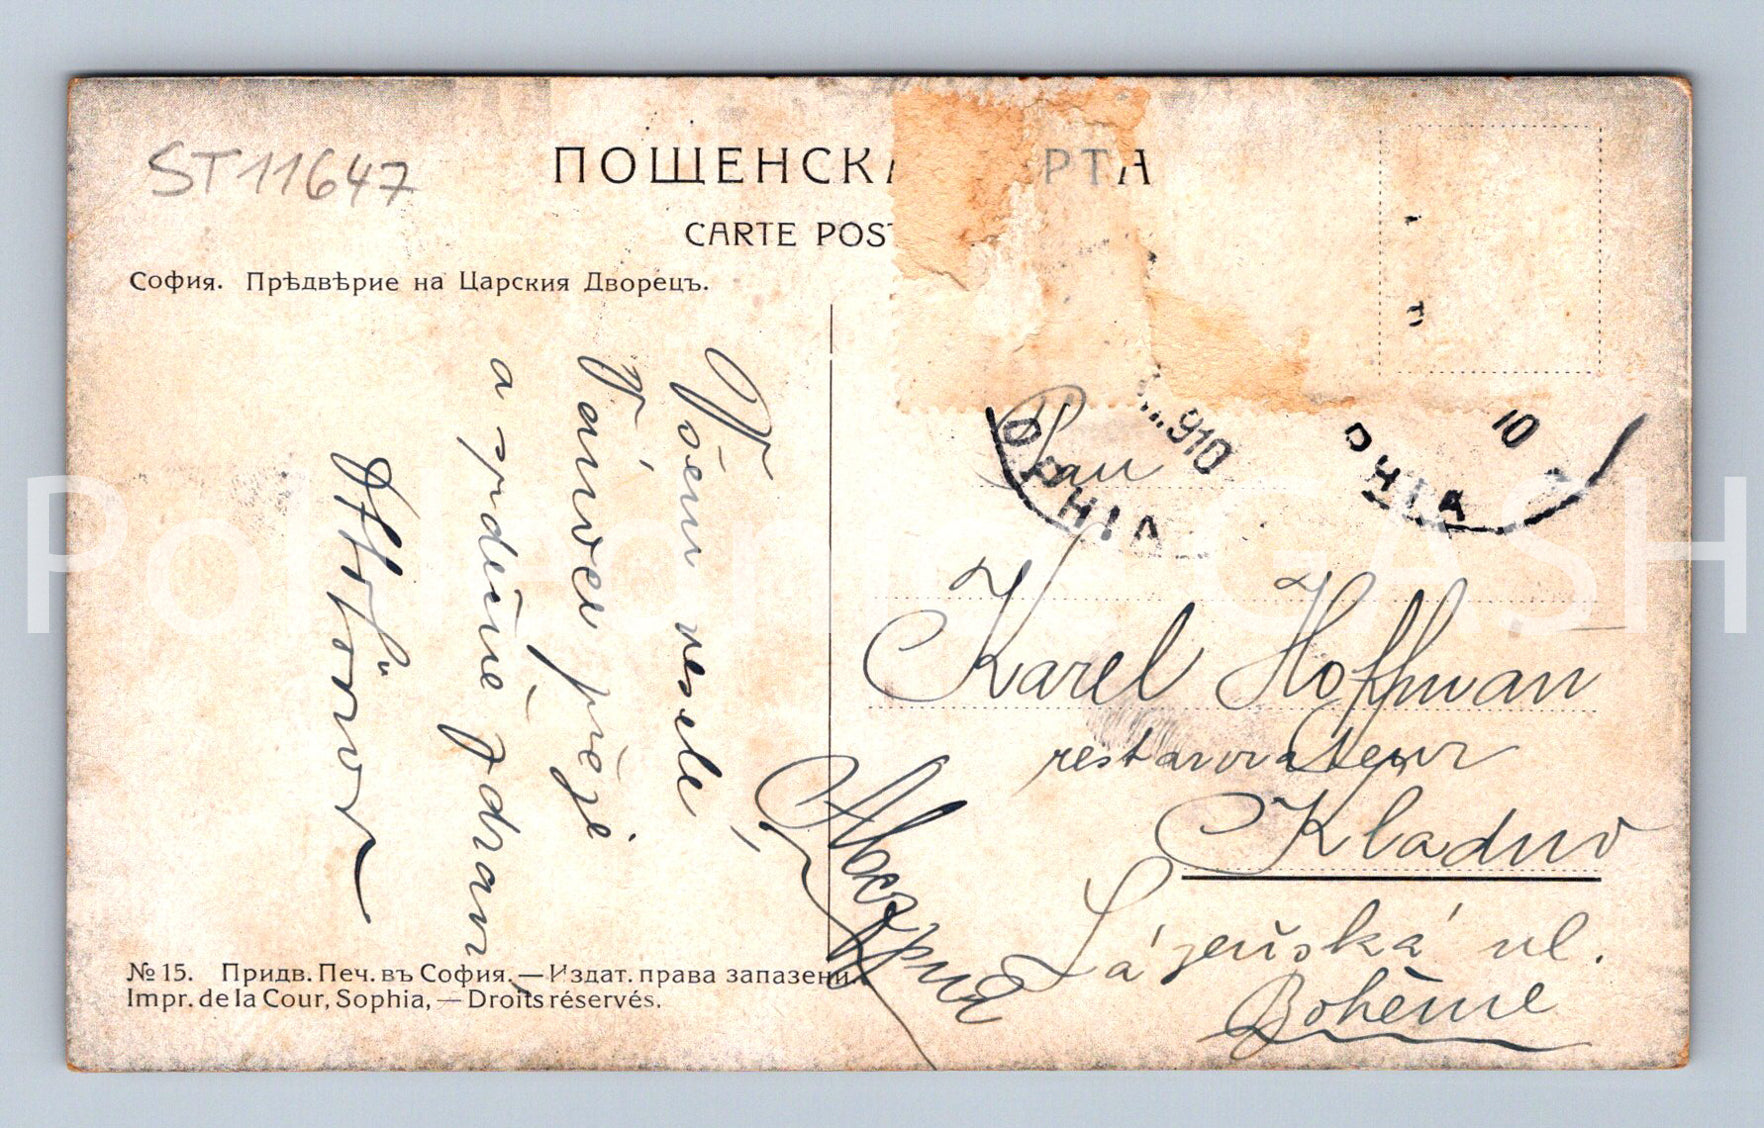 ST11647
ПОЩЕНСК РТА
CARTE POS
София. Прѣдвѣрие на Царския Дворецъ.
Všem veselé
Vánoce přeje
a srdečně zdraví
910
10
OPHIA
PHIA
Pan
Karel Hoffman
restaurateur
Kladno
Lázeňská ul.
Bohème
Австрия
№ 15. Придв. Печ. въ София. — Издат. права запазени.
Impr. de la Cour, Sophia, — Droits réservés.